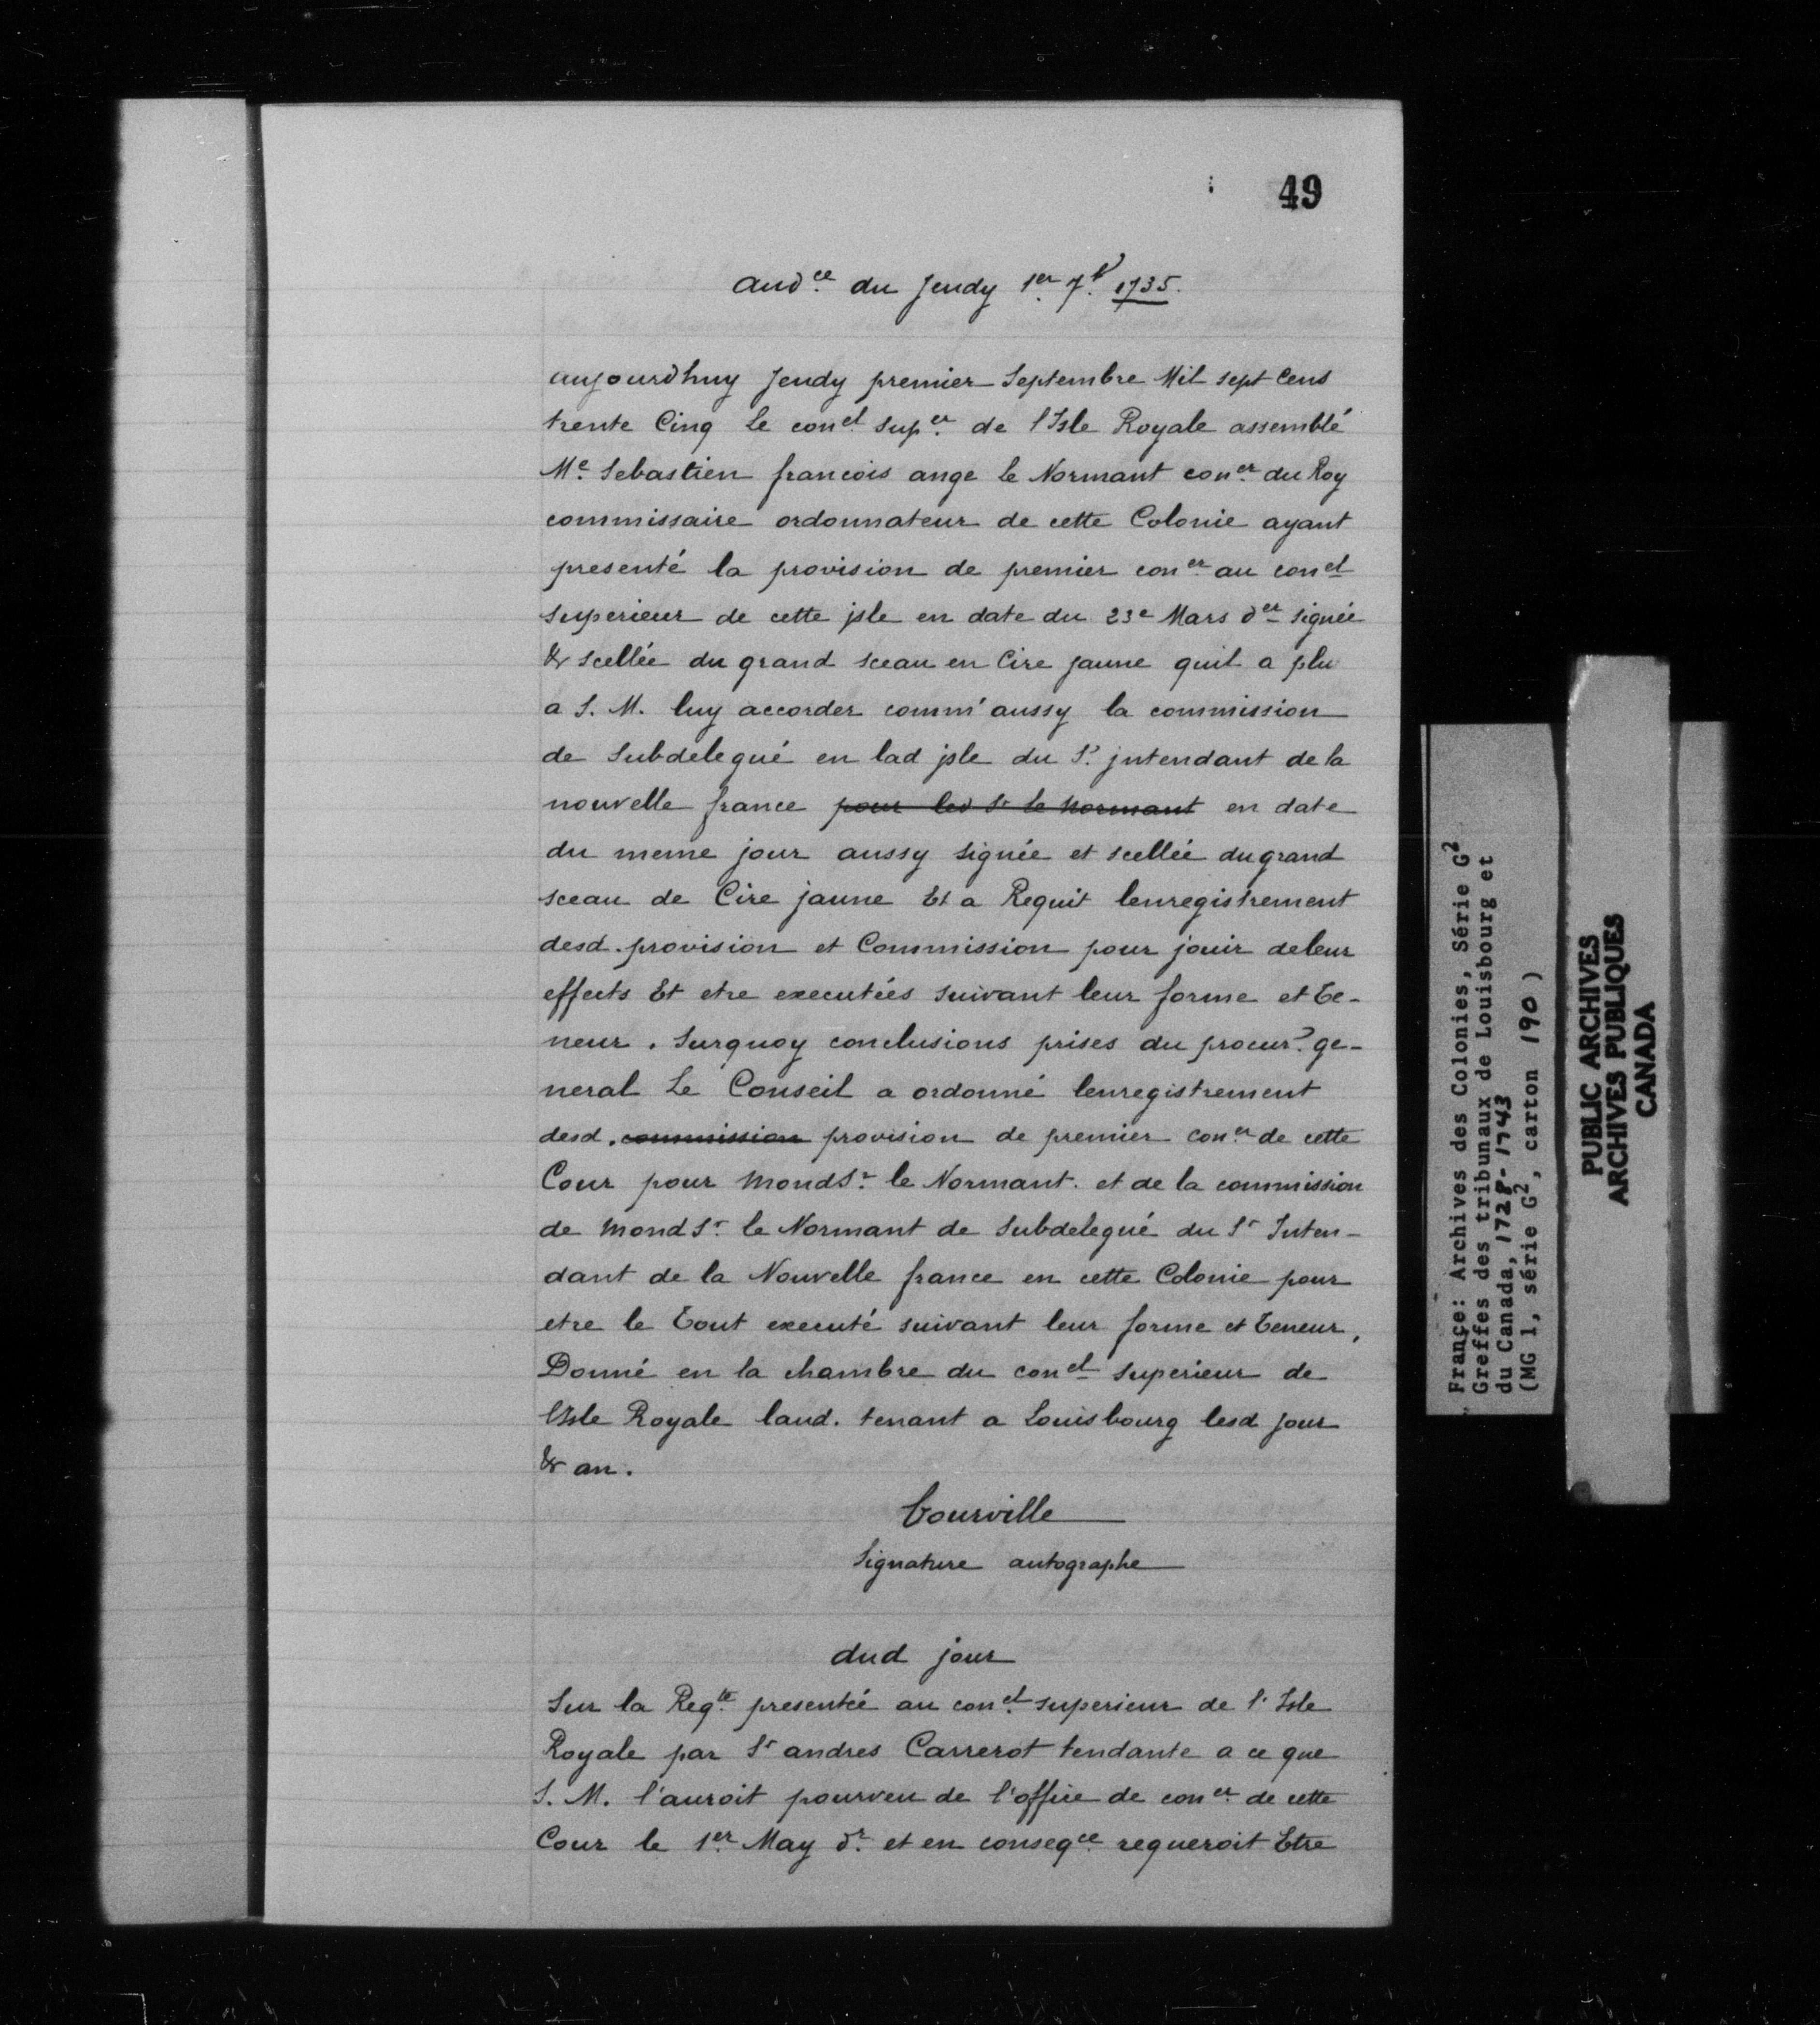 49
aud.ce du Jeudy 1er 7.b 1735.
aujourdhuy Jeudy premier Septembre Mil sept Cens
trente Cinq Le con.el sup.er de l'Isle Royale assemblé
M.e Sebastien francois ange le Normant con.er du Roy
commissaire ordonnateur de cette Colonie ayant
presenté la provision de premier con.er au conel
superieur de cette jsle en date du 23e Mars der signée
& scellée du grand sceau en Cire jaune quil a plu
a S. M. luy accorder comm'aussy la commission
de Subdelegué en lad jsle du S.r jntendant de la
nouvelle france ~~pour led Sr le Normant~~ en date
du meme jour aussy signée et scellée du grand
sceau de Cire jaune Et a Requit lenregistrement
desd. provision et Commission pour jouir deleur
effects Et etre executées suivant leur forme et Te-
neur. Surquoy conclusions prises du procur.r ge-
neral Le Conseil a ordonné lenregistrement
desd. ~~commission~~ provision de premier con.er de cette
Cour pour MondS.r le Normant. et de la commission
de MondS.r le Normant de Subdelegué du Sr Inten-
dant de la Nouvelle france en cette Colonie pour
etre le Tout executé suivant leur forme et Teneur,
Donné en la chambre du conel superieur de
l'Isle Royale laud. tenant a Louisbourg lesd jour
& an.
Tourville
Signature autographe
dud jour
Sur la Reqte presentée au con.el superieur de l'Isle
Royale par Sr andres Carrerot tendante a ce que
S. M. l'auroit pourveu de l'office de con.er de cette
Cour le 1er May d.r et en conseq.ce requeroit Etre
France: Archives des Colonies, Série G2
Greffes des tribunaux de Louisbourg et
du Canada, 1728-1743
(MG 1, série G2, carton 190)
PUBLIC ARCHIVES
ARCHIVES PUBLIQUES
CANADA